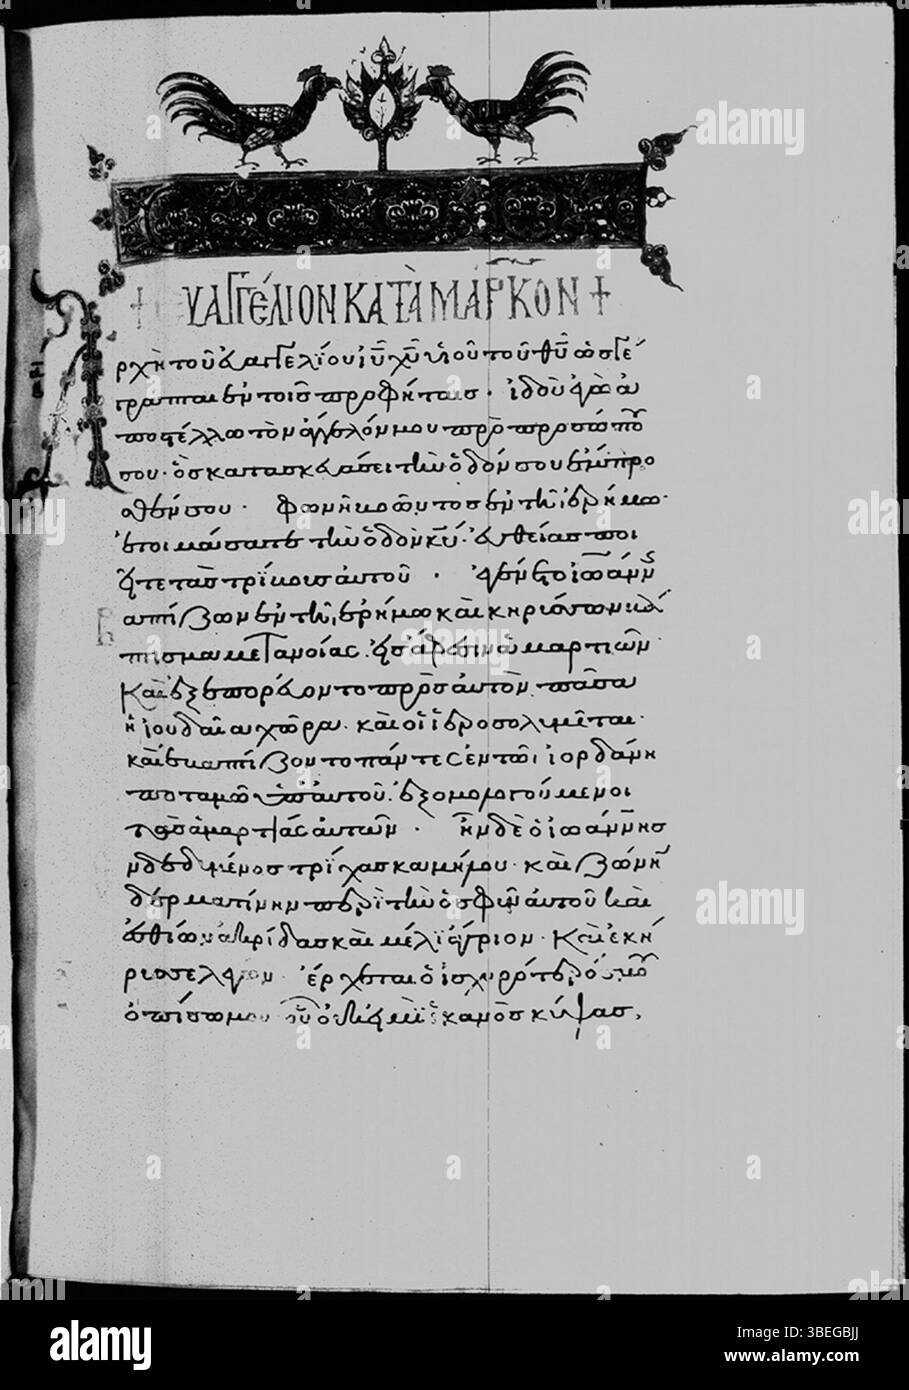 + ΕΥΑΓΓΕΛΙΟΝ ΚΑΤΑ ΜΑΡΚΟΝ +
Α
ρχὴ τοῦ εὐαγγελίου ἰῡ χῡ υἱοῦ τοῦ θῡ ὡς γέ
γραπται ἐν τοῖς προφήταις · ἰδοὺ ἐγὼ ἀ
ποστέλλω τὸν ἄγγελόν μου πρὸ προσώπου
σου · ὃς κατασκευάσει τὴν ὁδόν σου ἔμπρο
σθέν σου · φωνὴ βοῶντος ἐν τῇ ἐρήμω ·
ἑτοιμάσατε τὴν ὁδὸν κῡ · εὐθείας ποι
εῖτε τὰς τρίβους αὐτοῦ · ἐγένετο ἰωάννης
βαπτίζων ἐν τῇ ἐρήμω καὶ κηρύσσων βά
πτισμα μετανοίας εἰς ἄφεσιν ἁμαρτιῶν ·
Καὶ ἐξεπορεύοντο πρὸς αὐτὸν πᾶσα
ἡ ἰουδαία χώρα · καὶ οἱ ἱεροσολυμῖται ·
καὶ ἐβαπτίζοντο πάντες ἐν τῶ ἰορδάνη
ποταμῶ ὑπ' αὐτοῦ · ἐξομολογούμενοι
τὰς ἁμαρτίας αὐτῶν · ἦν δὲ ὁ ἰωάννης
ἐνδεδυμένος τρίχας καμήλου · καὶ ζώνην
δερματίνην περὶ τὴν ὀσφὺν αὐτοῦ καὶ
ἐσθίων ἀκρίδας καὶ μέλι ἄγριον · Καὶ ἐκή
ρυσσε λέγων · ἔρχεται ὁ ἰσχυρότερός μου
ὀπίσω μου οὗ οὐκ εἰμὶ ἱκανὸς κύψας
alamy
Image ID: 3BEGBJJ
www.alamy.com